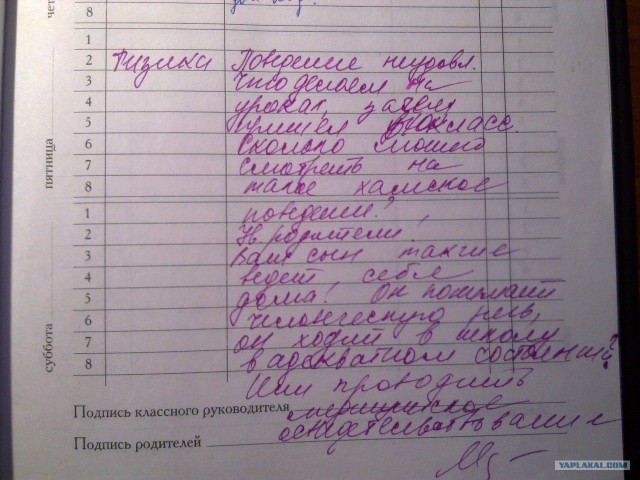 чет
8
1
2 Физика Поведение неудовл.
3 Что делает на
4 уроках, зачем
5 пришёл в 10 класс.
6 Сколько можно
7 смотреть на
8 такое хамское
пятница
1 поведение?
2 Ув. родители!
3 Ваш сын также
4 ведет себя
5 дома? Он понимает
6 человеческую речь,
7 он ходит в школу
8 в адекватном состоянии?
суббота
Или проводить
Подпись классного руководителя медицинское
Подпись родителей освидетельствование
YAPLAKAL.COM